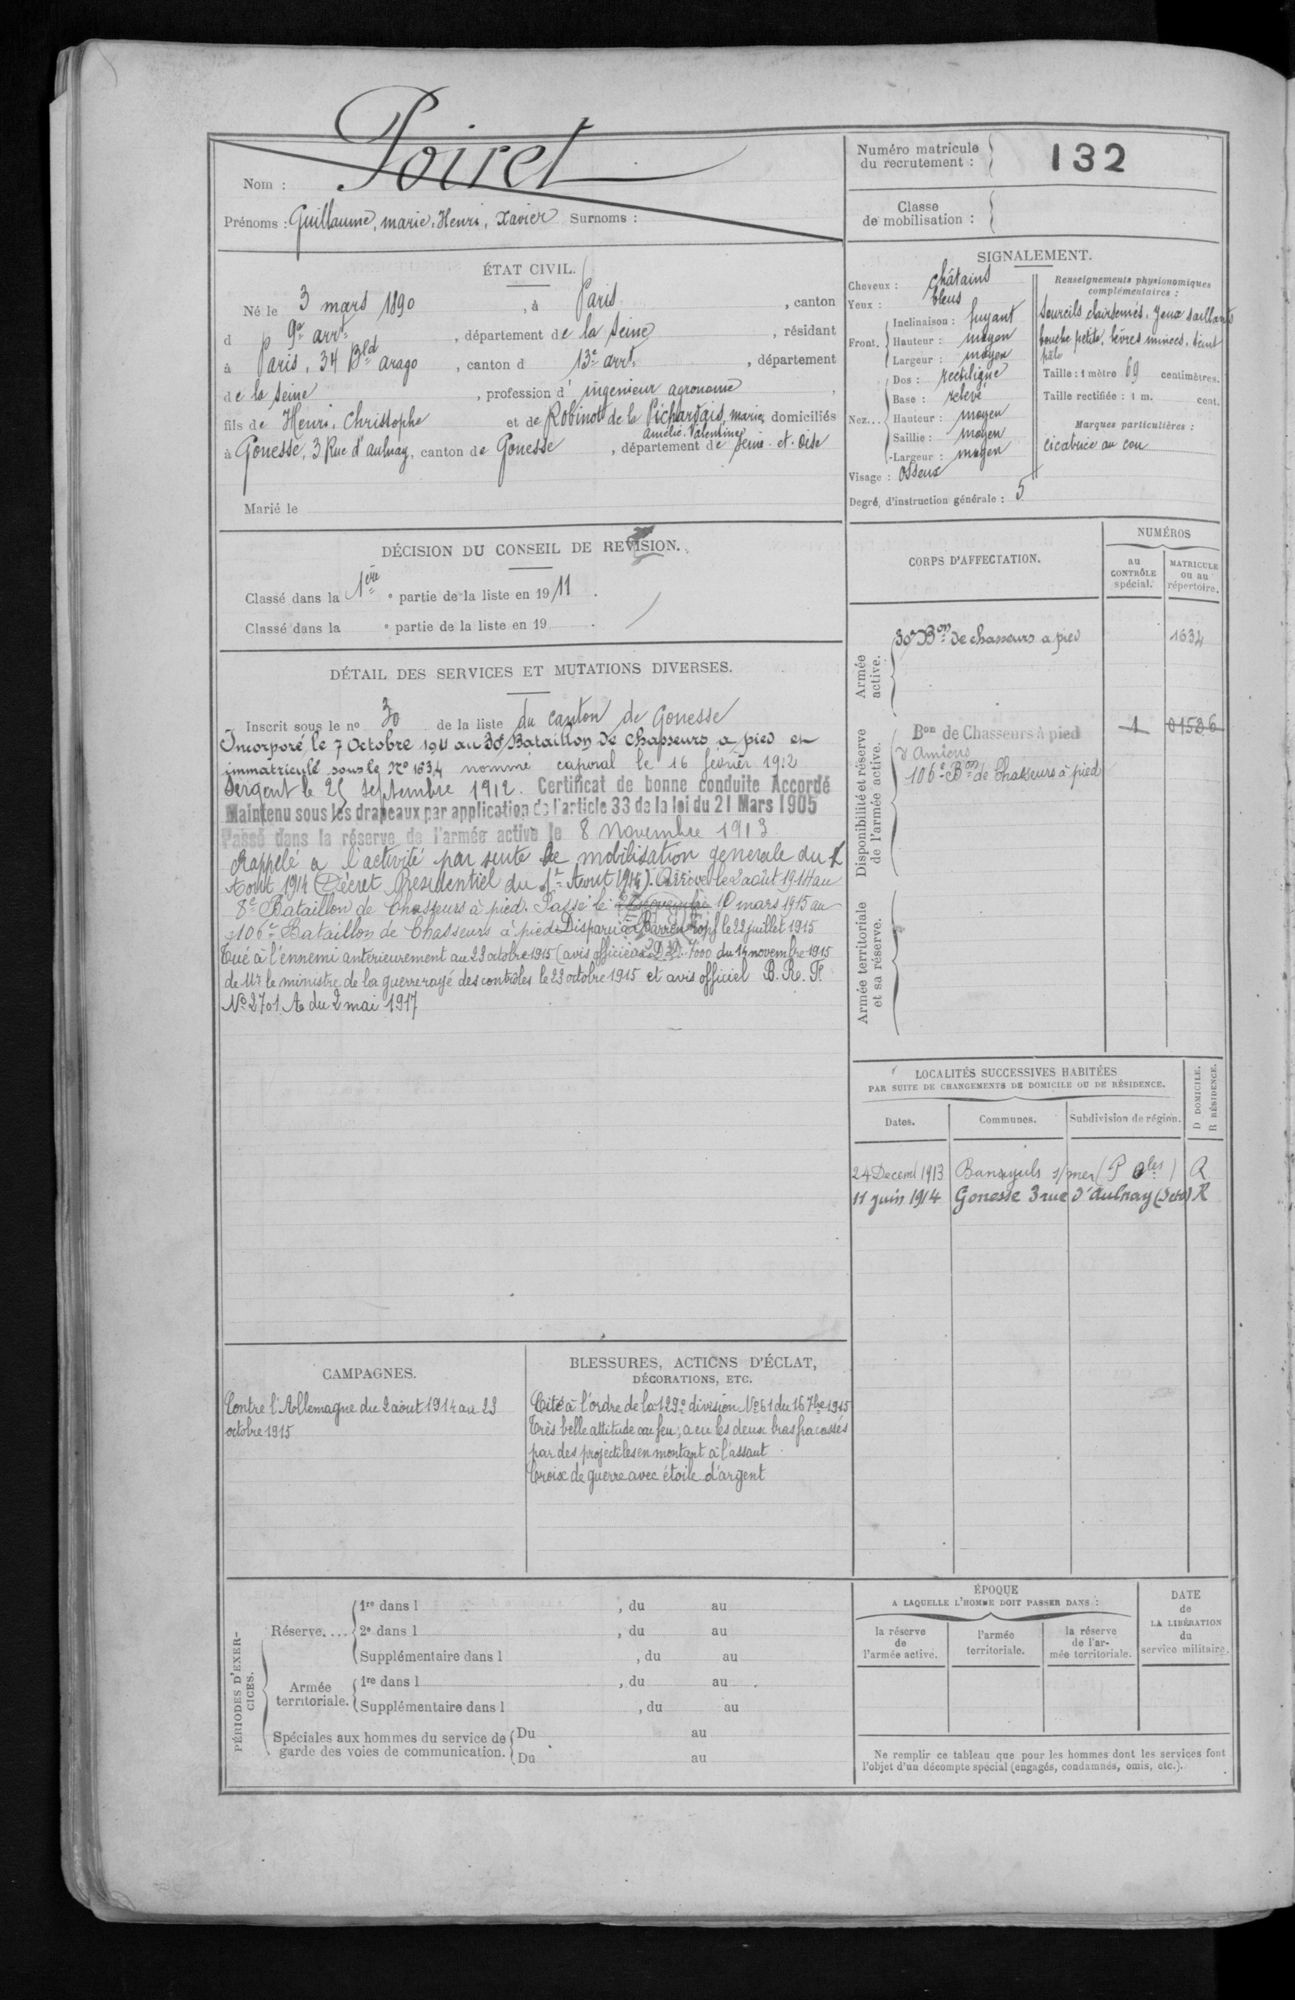 Nom : Poiret
Prénoms : Guillaume, marie, Henri, Xavier Surnoms :
Numéro matricule du recrutement : 132
Classe de mobilisation :
ÉTAT CIVIL.
Né le 3 mars 1890, à Paris, canton
d p 9e arrt, département de la Seine, résidant
à Paris, 34 Bld arago, canton d 13e arrt, département
de la Seine, profession d'ingénieur agronome,
fils de Henri, Christophe et de Robinot de la Pichardais, marie, Amélie, Valentine domiciliés
à Gonesse, 3 Rue d'aulnay, canton de Gonesse, département de Seine-et-Oise
Marié le
SIGNALEMENT.
Cheveux : châtains
Yeux : bleus
Front. Inclinaison : fuyant
Hauteur : moyen
Largeur : moyen
Nez... Dos : rectiligne
Base : relevé
Hauteur : moyen
Saillie : moyen
Largeur : moyen
Visage : osseux
Degré d'instruction générale : 5
Renseignements physionomiques complémentaires :
Sourcils clairsemés, yeux saillants
bouche petite, lèvres minces, teint
pâle
Taille : 1 mètre 69 centimètres.
Taille rectifiée : 1 m. cent.
Marques particulières :
cicatrice au cou
DÉCISION DU CONSEIL DE REVISION.
Classé dans la 1ère e partie de la liste en 1911.
Classé dans la e partie de la liste en 19 .
DÉTAIL DES SERVICES ET MUTATIONS DIVERSES.
Inscrit sous le no 30 de la liste du canton de Gonesse
Incorporé le 7 Octobre 1911 au 30e Bataillon de Chasseurs a pied et
immatriculé sous le No 1634 nommé caporal le 16 février 1912
Sergent le 25 Septembre 1912. Certificat de bonne conduite Accordé
Maintenu sous les drapeaux par application de l'article 33 de la loi du 21 Mars 1905
Passé dans la réserve de l'armée active le 8 novembre 1913
Rappelé a l'activité par suite de mobilisation generale du 1
Aout 1914 (Décret Presidentiel du 1er Aout 1914). Arrivé le 2 aout 1914 au
8e Bataillon de Chasseurs à pied. Passé le 10 mars 1915 au
106e Bataillon de Chasseurs à pied Disparu à Barrenkopf le 22 juillet 1915
Tué à l'ennemi antérieurement au 23 octobre 1915 (avis officiel No 7000 du 14 novembre 1915
de Mr le ministre de la guerre rayé des contrôles le 23 octobre 1915 et avis officiel B.R.F.
No 2701 A du 2 mai 1917
CORPS D'AFFECTATION.
NUMÉROS
au CONTRÔLE spécial.
MATRICULE ou au répertoire.
Armée active.
30e Bon de chasseurs a pied 1634
Disponibilité et réserve de l'armée active.
Bon de Chasseurs à pied 1 01536
d'Amiens
106e Bon de Chasseurs à pied
Armée territoriale et sa réserve.
LOCALITÉS SUCCESSIVES HABITÉES
PAR SUITE DE CHANGEMENTS DE DOMICILE OU DE RÉSIDENCE.
Dates. Communes. Subdivision de région. D DOMICILE. R RÉSIDENCE.
24 Decem 1913 Banyuls s/mer (P Oles) R
11 juin 1914 Gonesse 3 rue d'aulnay (S et O) R
CAMPAGNES.
Contre l'Allemagne du 2 aout 1914 au 23
octobre 1915
BLESSURES, ACTIONS D'ÉCLAT,
DÉCORATIONS, ETC.
Cité à l'ordre de la 129e division No 61 du 16 7bre 1915
Très belle attitude au feu; a eu les deux bras fracassés
par des projectiles en montant à l'assaut
Croix de guerre avec étoile d'argent
PÉRIODES D'EXERCICES.
Réserve.... 1re dans l , du au
2e dans l , du au
Supplémentaire dans l , du au
Armée territoriale. 1re dans l , du au
Supplémentaire dans l , du au
Spéciales aux hommes du service de garde des voies de communication. Du au
Du au
ÉPOQUE
A LAQUELLE L'HOMME DOIT PASSER DANS :
la réserve de l'armée active.
l'armée territoriale.
la réserve de l'armée territoriale.
DATE de LA LIBÉRATION du service militaire.
Ne remplir ce tableau que pour les hommes dont les services font
l'objet d'un décompte spécial (engagés, condamnés, omis, etc.).